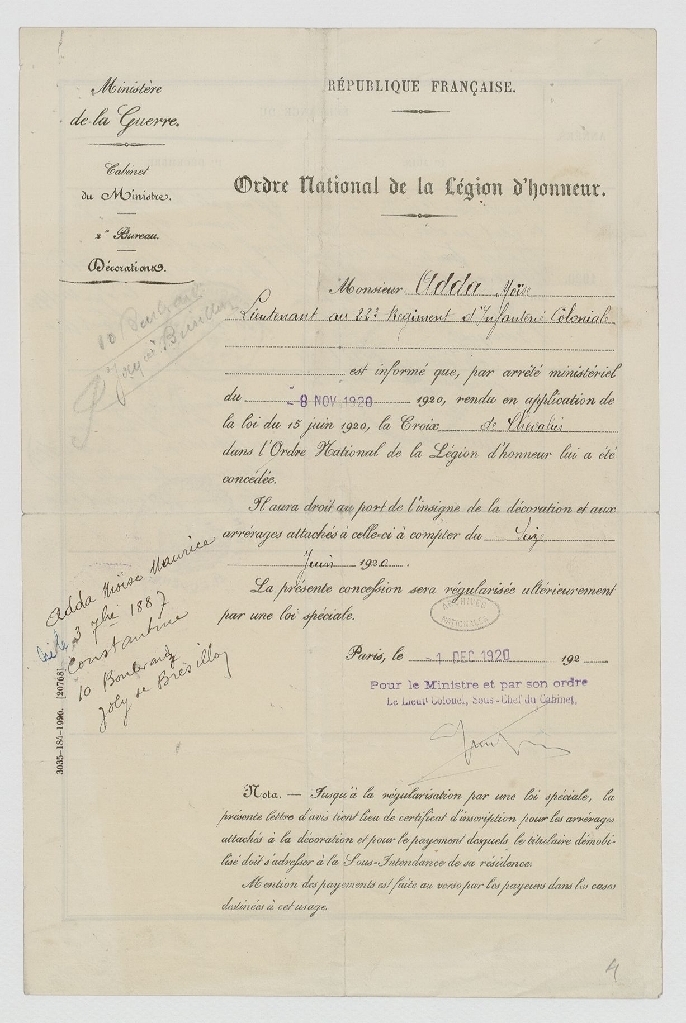 Ministère
de la Guerre.
Cabinet
du Ministre.
2e Bureau.
Décorations.
RÉPUBLIQUE FRANÇAISE.
Ordre National de la Légion d'honneur.
Monsieur Adda Moïse
Lieutenant au 22e Regiment d'Infanterie Coloniale
est informé que, par arrêté ministériel
du -8 NOV. 1920 1920, rendu en application de
la loi du 15 juin 1920, la Croix de Chevalier
dans l'Ordre National de la Légion d'honneur lui a été
concédée.
Il aura droit au port de l'insigne de la décoration et aux
arrérages attachés à celle-ci à compter du Seize
Juin 1920.
La présente concession sera régularisée ultérieurement
par une loi spéciale.
ARCHIVES
NATIONALES
Paris, le -1 DEC 1920 192
Pour le Ministre et par son ordre
Le Lieut Colonel, Sous-Chef du Cabinet,
10 Boulevard
Joly de Brésillon
Adda Moïse Maurice
3 7bre 1887
Constantine
10 Boulevard
Joly de Brésillon
3035-185-1920. [20768]
Nota. — Jusqu'à la régularisation par une loi spéciale, la
présente lettre d'avis tient lieu de certificat d'inscription pour les arrérages
attachés à la décoration et pour le payement desquels le titulaire démobi-
lisé doit s'adresser à la Sous-Intendance de sa résidence.
Mention des payements est faite au verso par les payeurs dans les cases
destinées à cet usage.
4